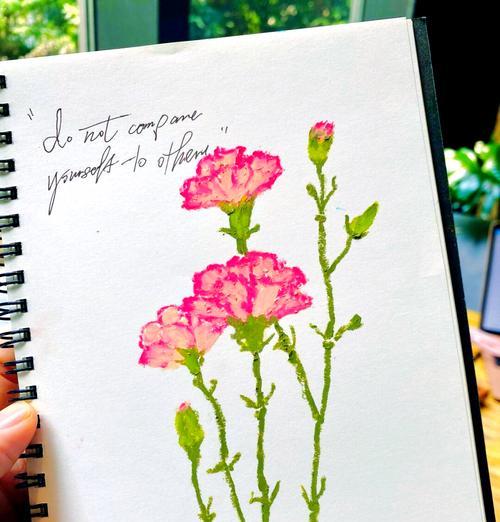 "do not compare
yourself to others"